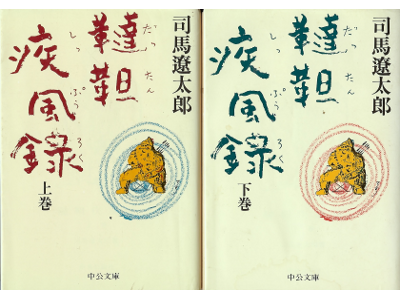 司馬遼太郎
韃靼
だったん
疾風録
しっぷうろく
上巻
中公文庫
司馬遼太郎
韃靼
だったん
疾風録
しっぷうろく
下巻
中公文庫